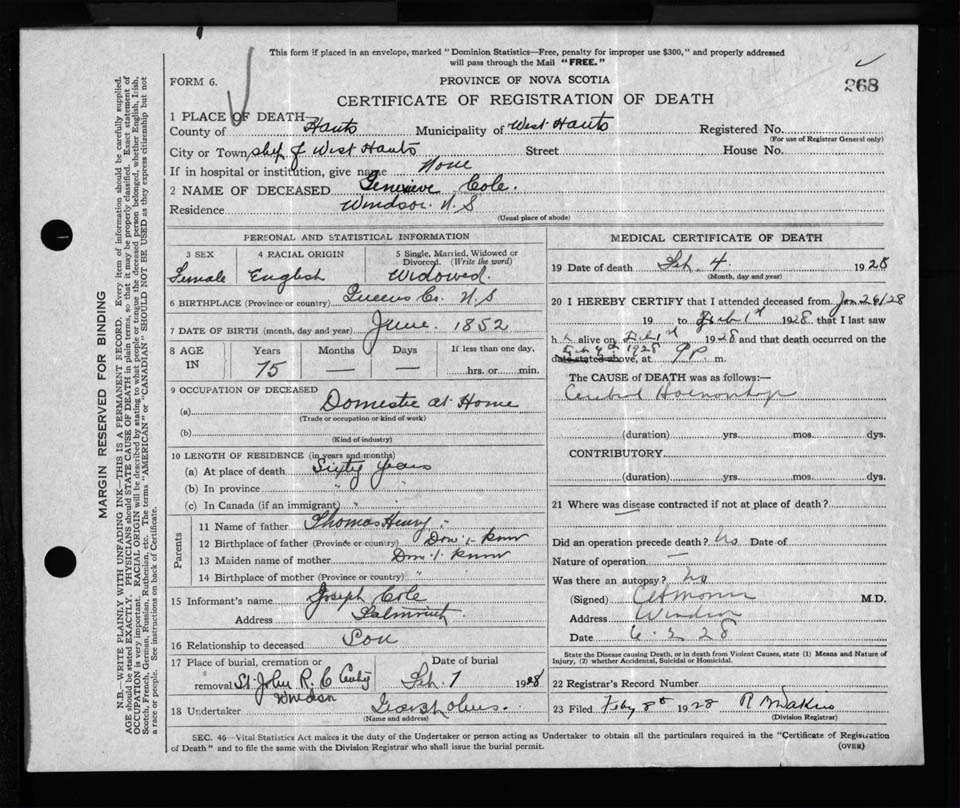 This form if placed in an envelope, marked "Dominion Statistics—Free, penalty for improper use $300," and properly addressed
will pass through the Mail "FREE."
FORM 6.
PROVINCE OF NOVA SCOTIA
268
CERTIFICATE OF REGISTRATION OF DEATH
1 PLACE OF DEATH
County of Hants Municipality of West Hants Registered No.
(For use of Registrar General only)
City or Town, of West Hants Street House No.
If in hospital or institution, give name None
2 NAME OF DECEASED Genevieve Cole.
Residence Windsor. N. S
(Usual place of abode)
PERSONAL AND STATISTICAL INFORMATION
3 SEX 4 RACIAL ORIGIN 5 Single, Married, Widowed or
Divorced. (Write the word)
Female English Widowed.
6 BIRTHPLACE (Province or country) Queens Co. N. S
7 DATE OF BIRTH (month, day and year) June. 1852
8 AGE Years Months Days If less than one day,
IN 75 — — hrs. or min.
9 OCCUPATION OF DECEASED
(a) Domestic at Home
(Trade or occupation or kind of work)
(b)
(Kind of industry)
10 LENGTH OF RESIDENCE (in years and months)
(a) At place of death Sixty years
(b) In province " "
(c) In Canada (if an immigrant) " "
Parents
11 Name of father Thomas Henry
12 Birthplace of father (Province or country) Don't know
13 Maiden name of mother Don't know
14 Birthplace of mother (Province or country) "
15 Informant's name Joseph Cole
Address Falmouth
16 Relationship to deceased Son
17 Place of burial, cremation or Date of burial
removal St. John R. C Feb. 7 1928
Windsor
18 Undertaker
(Name and address)
MEDICAL CERTIFICATE OF DEATH
19 Date of death Feb 4 1928
(Month, day and year)
20 I HEREBY CERTIFY that I attended deceased from Jan 26/28
19 to Feb 1st 1928 that I last saw
h alive on Feb 1st 1928 and that death occurred on the
Feb 4th 1928
date stated above, at 9 p m.
The CAUSE of DEATH was as follows:—
Cerebral
(duration) yrs. mos. dys.
CONTRIBUTORY
(duration) yrs. mos. dys.
21 Where was disease contracted if not at place of death?
Did an operation precede death? no Date of
Nature of operation —
Was there an autopsy? no
(Signed) M.D.
Address Windsor
Date 6. 2 28
State the Disease causing Death, or in death from Violent Causes, state (1) Means and Nature of
Injury, (2) whether Accidental, Suicidal or Homicidal.
22 Registrar's Record Number
23 Filed 8th 1928
(Division Registrar)
SEC. 46—Vital Statistics Act makes it the duty of the Undertaker or person acting as Undertaker to obtain all the particulars required in the "Certificate of Registration
of Death" and to file the same with the Division Registrar who shall issue the burial permit.
(OVER)
MARGIN RESERVED FOR BINDING
N.B.—WRITE PLAINLY WITH UNFADING INK—THIS IS A PERMANENT RECORD. Every item of information should be carefully supplied.
AGE should be stated EXACTLY. PHYSICIANS should STATE CAUSE OF DEATH in plain terms, so that it may be properly classified. Exact statement of
OCCUPATION is very important. RACIAL ORIGIN will be described by stating to what people or tongue the deceased person belonged, whether English, Irish,
Scotch, French, German, Russian, Ruthenian, etc. The terms "AMERICAN" or "CANADIAN" SHOULD NOT BE USED as they express citizenship but not
a race or people. See instructions on back of Certificate.